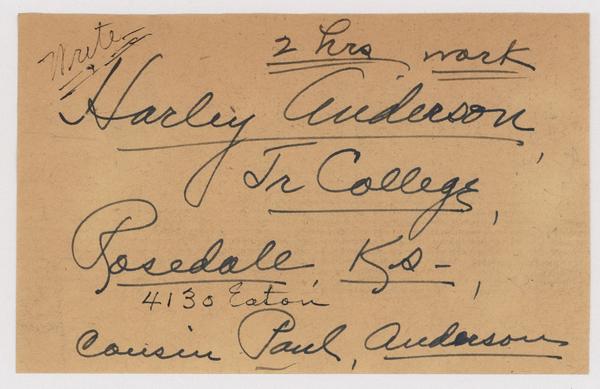 Write
2 hrs work
Harley Anderson,
Jr College,
Rosedale, Ks-,
4130 Eaton
Cousin Paul, Anderson